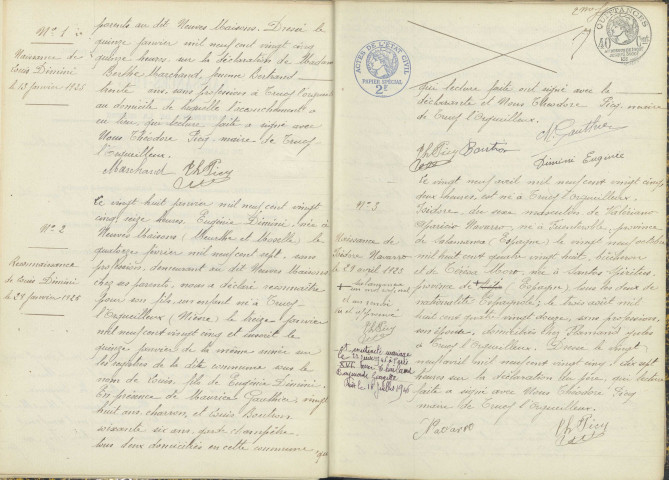 N° 1
Naissance de
Louis Dimini
le 13 janvier 1925
parents au dit Neuves Maisons. Dressé le
quinze janvier mil neuf cent vingt cinq
heures, sur la déclaration de Madame
Berthe Marchand, femme Bertrand
trente ans, sans profession à Trucy l'orgueilleux
au domicile de laquelle l'accouchement a
eu lieu, qui lecture faite a signé avec
Nous Théodore Picq, maire de Trucy
l'Orgueilleux.
Marchand Th Picq
N° 2
Reconnaissance
de Louis Dimini
le 28 janvier 1925
Le vingt huit janvier mil neuf cent vingt
cinq, seize heures, Eugénie Dimini, née à
Neuves Maisons (Meurthe et Moselle) le
quatorze février mil neuf cent sept, sans
profession, demeurant au dit Neuves Maisons
chez ses parents, nous a déclaré reconnaître
pour son fils, un enfant né à Trucy
l'Orgueilleux (Nièvre) le treize janvier
mil neuf cent vingt cinq et inscrit le
quinze janvier de la même année sur
les registres de la dite commune sous le
nom de Louis, fils de Eugénie Dimini.
En présence de Maurice Gauthier, vingt
huit ans, charron, et Louis Boutron
soixante six ans, garde champêtre,
tous deux domiciliés en cette commune
QUITTANCES
40
ACTES DE L'ÉTAT CIVIL
PAPIER SPÉCIAL
2F
qui lecture faite ont signé avec la
déclarante et Nous Théodore Picq, maire
de Trucy l'Orgueilleux.
M. Gauthier
Th Picq Boutron Dimini Eugénie
N° 3
Naissance de
Isidore Navarro
le 29 avril 1925
Th Picq
Le vingt neuf avril mil neuf cent vingt cinq
deux heures est né à Trucy l'Orgueilleux,
Isidore, du sexe masculin de
Navarro, né à province
de Salamanca (Espagne) le vingt neuf
mil huit cent quatre vingt huit, bûcheron
et de née à Santos
province de (Espagne) tous les deux de
nationalité Espagnole, le trois août mil
huit cent quatre vingt douze, sans profession,
son épouse, domiciliés
à Trucy l'Orgueilleux. Dressé le vingt
neuf avril mil neuf cent vingt cinq, dix sept
heures sur la déclaration du père, qui lecture
faite a signé avec Nous Théodore Picq
maire de Trucy l'Orgueilleux.
Navarro Th Picq